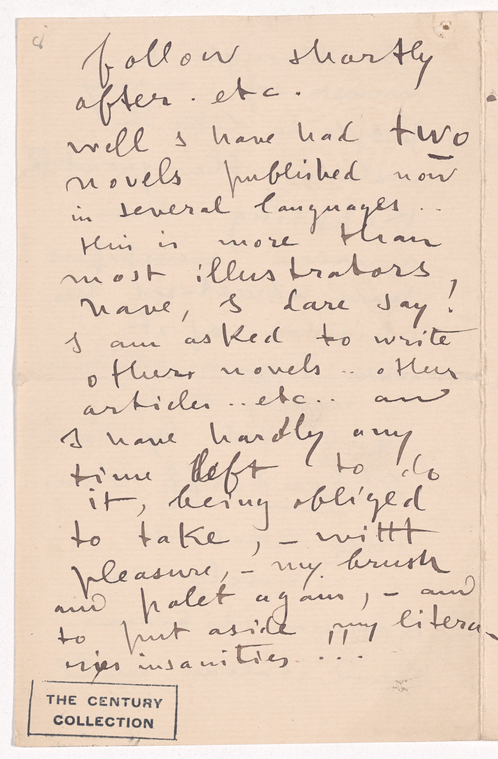 follow shortly
after. etc.
well I have had two
novels published now
in several languages ..
this is more than
most illustrators,
have, I dare say!
I am asked to write
others novels .. other
articles .. etc.. and
I have hardly any
time left to do
it, being obliged
to take, - witht
pleasure, - my brush
and palet again, - and
to put aside "my litera-
ries insanities ...
THE CENTURY
COLLECTION